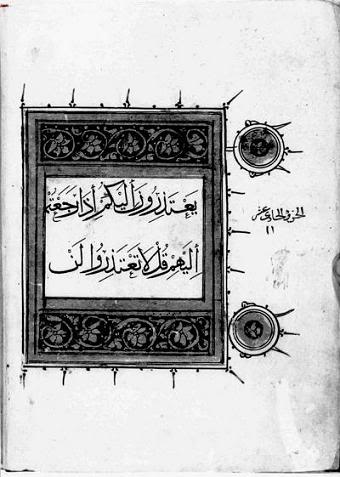 يَعْتَذِرُونَ أَلَيْكُمْ أِذَا رَجَعْتُمْ
أِلَيْهِمْ قُلْ لَا تَعْتَذِرُوا لَنْ
الجزو الحادي عشر
١١